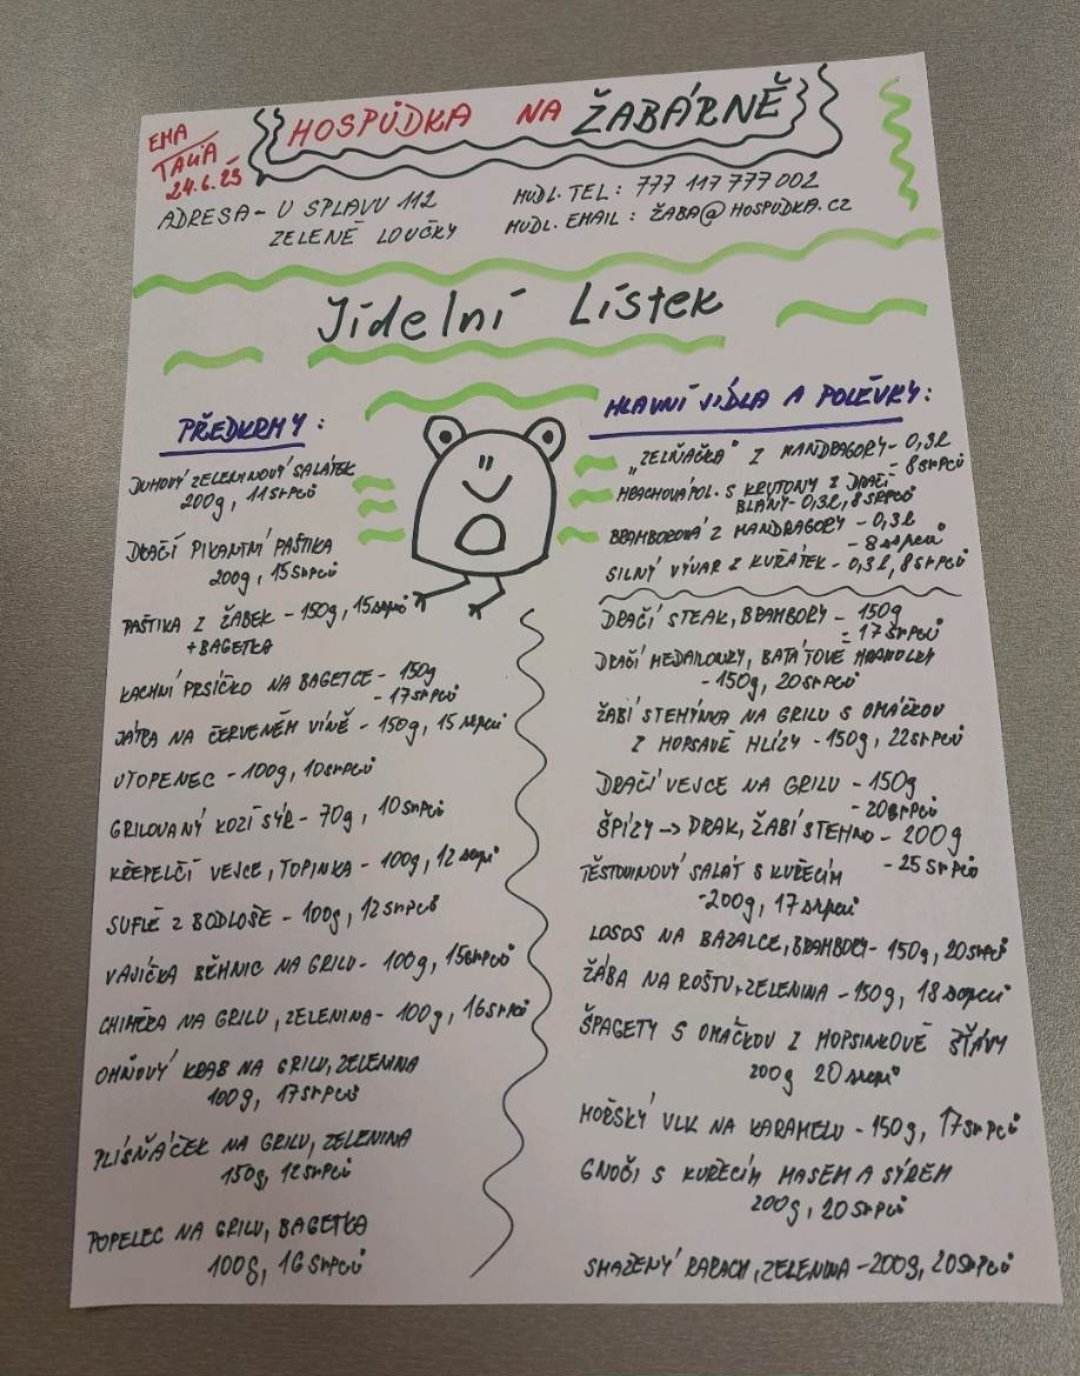 EMA
TALIA
24.6.25
HOSPŮDKA NA ŽABÁRNĚ
ADRESA - U SPLAVU 112
ZELENÉ LOUČKY
MUDL. TEL: 777 117 777 002
MUDL. EMAIL: ŽABA@HOSPŮDKA.CZ
Jídelní Lístek
PŘEDKRMY:
DUHOVÝ ZELENINOVÝ SALÁTEK
200g, 11 SRPCŮ
DRAČÍ PIKANTNÍ PAŠTIKA
200g, 15 SRPCŮ
PAŠTIKA Z ŽABEK - 150g, 15 SRPCŮ
+ BAGETKA
KACHNÍ PRSÍČKO NA BAGETCE - 150g
- 17 SRPCŮ
JÁTRA NA ČERVENÉM VÍNĚ - 150g, 15 SRPCŮ
UTOPENEC - 100g, 10 SRPCŮ
GRILOVANÝ KOZÍ SÝR - 70g, 10 SRPCŮ
KŘEPELČÍ VEJCE, TOPINKA - 100g, 12 SRPCŮ
SUFLÉ Z BODLOŠE - 100g, 12 SRPCŮ
VAJÍČKA BĚHNIC NA GRILU - 100g, 15 SRPCŮ
CHIMÉRA NA GRILU, ZELENINA - 100g, 16 SRPCŮ
OHŇOVÝ KRAB NA GRILU, ZELENINA
100g, 17 SRPCŮ
PLÍSŇÁČEK NA GRILU, ZELENINA
150g, 12 SRPCŮ
POPELEC NA GRILU, BAGETKA
100g, 16 SRPCŮ
HLAVNÍ JÍDLA A POLÉVKY:
„ZELŇAČKA" Z MANDRAGORY - 0,3l
- 8 SRPCŮ
HRACHOVÁ POL. S KRUTONY Z DRAČÍ
BLÁNY - 0,3l, 8 SRPCŮ
BRAMBOROVÁ Z MANDRAGORY - 0,3l
- 8 SRPCŮ
SILNÝ VÝVAR Z KUŘÁTEK - 0,3l, 8 SRPCŮ
DRAČÍ STEAK, BRAMBORY - 150g
- 17 SRPCŮ
DRAČÍ MEDAILONKY, BATÁTOVÉ HRANOLKY
- 150g, 20 SRPCŮ
ŽABÍ STEHÝNKA NA GRILU S OMÁČKOU
Z HOPSAVÉ HLÍZY - 150g, 22 SRPCŮ
DRAČÍ VEJCE NA GRILU - 150g
- 20 SRPCŮ
ŠPÍZY -> DRAK, ŽABÍ STEHNO - 200g
- 25 SRPCŮ
TĚSTOVINOVÝ SALÁT S KUŘECÍM
- 200g, 17 SRPCŮ
LOSOS NA BAZALCE, BRAMBORY - 150g, 20 SRPCŮ
ŽÁBA NA ROŠTU, ZELENINA - 150g, 18 SRPCŮ
ŠPAGETY S OMÁČKOU Z HOPSINKOVÉ ŠŤÁVY
200g 20 SRPCŮ
MOŘSKÝ VLK NA KARAMELU - 150g, 17 SRPCŮ
GNOČI S KUŘECÍM MASEM A SÝREM
200g, 20 SRPCŮ
SMAŽENÝ RARACH, ZELENINA - 200g, 20 SRPCŮ